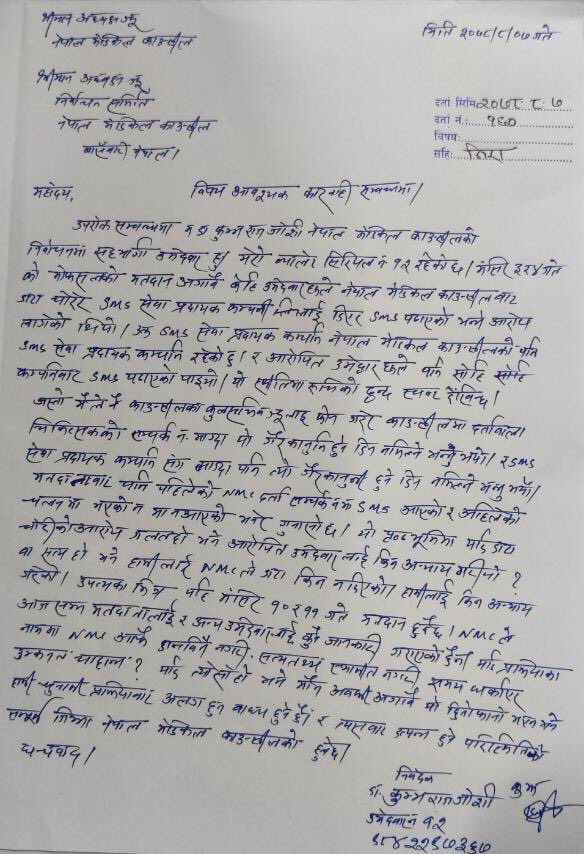 श्रीमान् अध्यक्ष ज्यू
नेपाल मेडिकल काउन्सील
मिति २०७८/८/०७ गते
श्रीमान् अध्यक्ष ज्यू
निर्वाचन समिति
नेपाल मेडिकल काउन्सील
बाँसबारी नेपाल।
दर्ता मिति २०७८.८.७
दर्ता नं.: ९६०
विषय:
सहि:
महोदय,
विषय आवश्यक कारवाही सम्बन्धमा।
उपरोक्त सम्बन्धमा म डा कुम्भ राज जोशी नेपाल मेडिकल काउन्सीलको
निर्वाचनमा सहभागी उमेदवार हुँ। मेरो ब्यालेट सिरियल नं १२ रहेको छ। मंसिर ३ र ४ गते
को मतदान अगावै केहि उमेदवारहरुले नेपाल मेडिकल काउन्सील बाट
डाटा चोरेर SMS सेवा प्रदायक कम्पनी लाई दिएर SMS पठाएको भन्ने आरोप
लागेको थियो। उक्त SMS सेवा प्रदायक कम्पनि नेपाल मेडिकल काउन्सीलको पनि
SMS सेवा प्रदायक कम्पनि रहेको छ। र आरोपित उमेद्वारहरुले पनि सोहि
कम्पनिबाट SMS पठाएको पाइयो। यो स्थितिमा रुचिको द्वन्द स्पष्ट देखिन्छ।
जस्तो मैले नै काउन्सीलका ज्यूलाई फोन गरेर काउन्सीलमा दर्तावाला
चिकित्सकको सम्पर्क नं. माग्दा यो गैरकानुनि हुने दिन नमिल्ने भन्नु भयो। र SMS
सेवा प्रदायक कम्पनि संग माग्दा पनि त्यो गैरकानुनी हुने दिन नमिल्ने भन्नु भयो।
मतदाताबाट पनि पहिलेको NMC दर्ता सम्पर्क नं मा SMS आएको र अहिलेको
चलनमा भएको नं मा नआएको भनेर गुनासो छ। यो पृष्ठभूमिमा यदि डाटा
चोरीको आरोप गलत हो भने आरोपित उमेदवार लाई किन अन्याय गरियो?
वा सत्य हो भने हामीलाई NMC ले डाटा किन नदिएको। हामीलाई किन अन्याय
गरेको। उपत्यका भित्र यहि मंसिर १० र ११ गते मतदान हुदैछ। NMC ले
आज सम्म मतदातालाई र अन्य उमेदवार लाई कुनै जानकारी गराएको छैन। यदि प्रक्रियाका
नाममा NMC आफै छानविन नगरी, सत्यतथ्य स्थापित नगरी समय घर्काएर
उम्कन चाहान्छ? यदि त्यसो हो भने मौन अवधी अगावै यो
हामी चुनावी प्रक्रियाबाट अलग हुन बाध्य हुनेछौं। र त्यसबाट उत्पन्न हुने परिस्थितिको
सम्पूर्ण जिम्मा नेपाल मेडिकल काउन्सीलको हुनेछ।
धन्यवाद।
निवेदक
डा. कुम्भ राज जोशी
उमेदवार नं १२